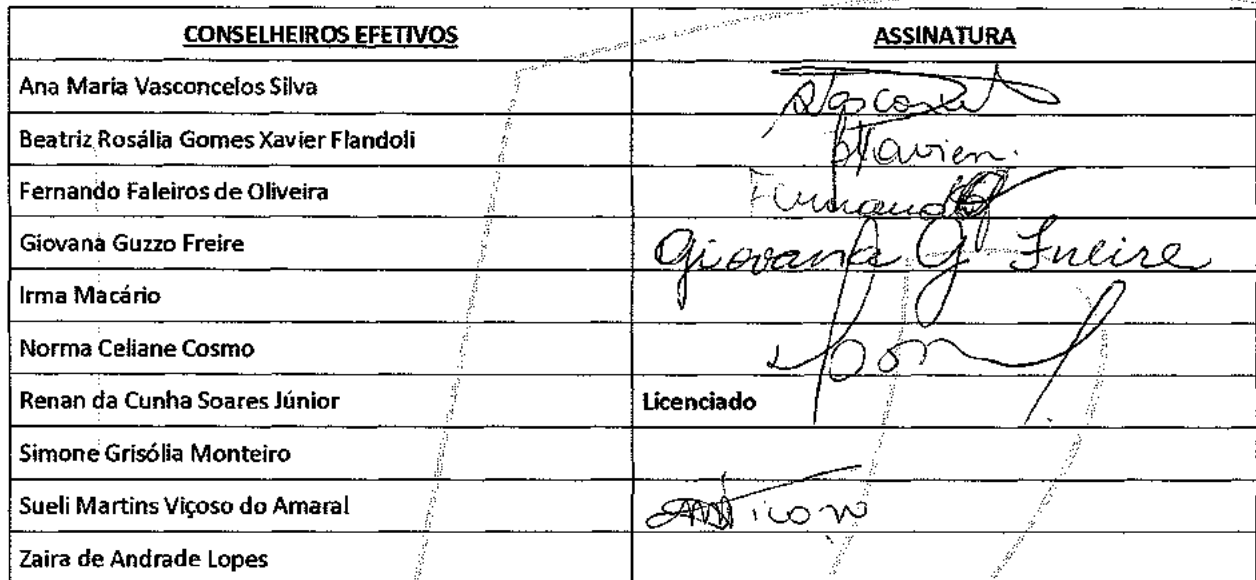 CONSELHEIROS EFETIVOS ASSINATURA
Ana Maria Vasconcelos Silva
Beatriz Rosália Gomes Xavier Flandoli
Fernando Faleiros de Oliveira Fernando
Giovana Guzzo Freire Giovana G Freire
Irma Macário
Norma Celiane Cosmo
Renan da Cunha Soares Júnior Licenciado
Simone Grisólia Monteiro
Sueli Martins Viçoso do Amaral
Zaira de Andrade Lopes